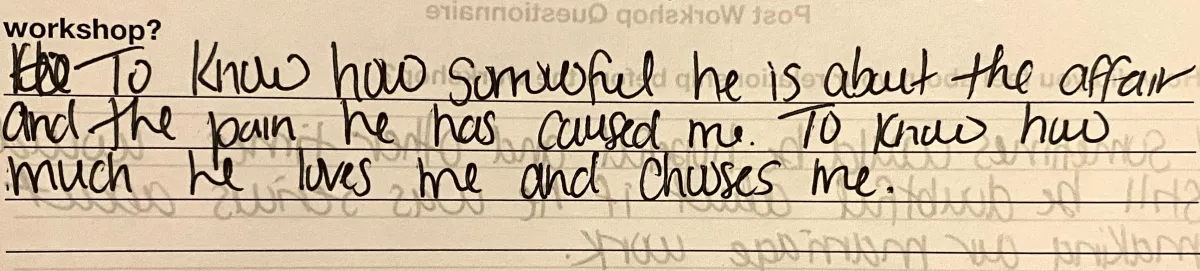 workshop?
To know how sorrowful he is about the affair
and the pain he has caused me. To know how
much he loves me and chooses me.